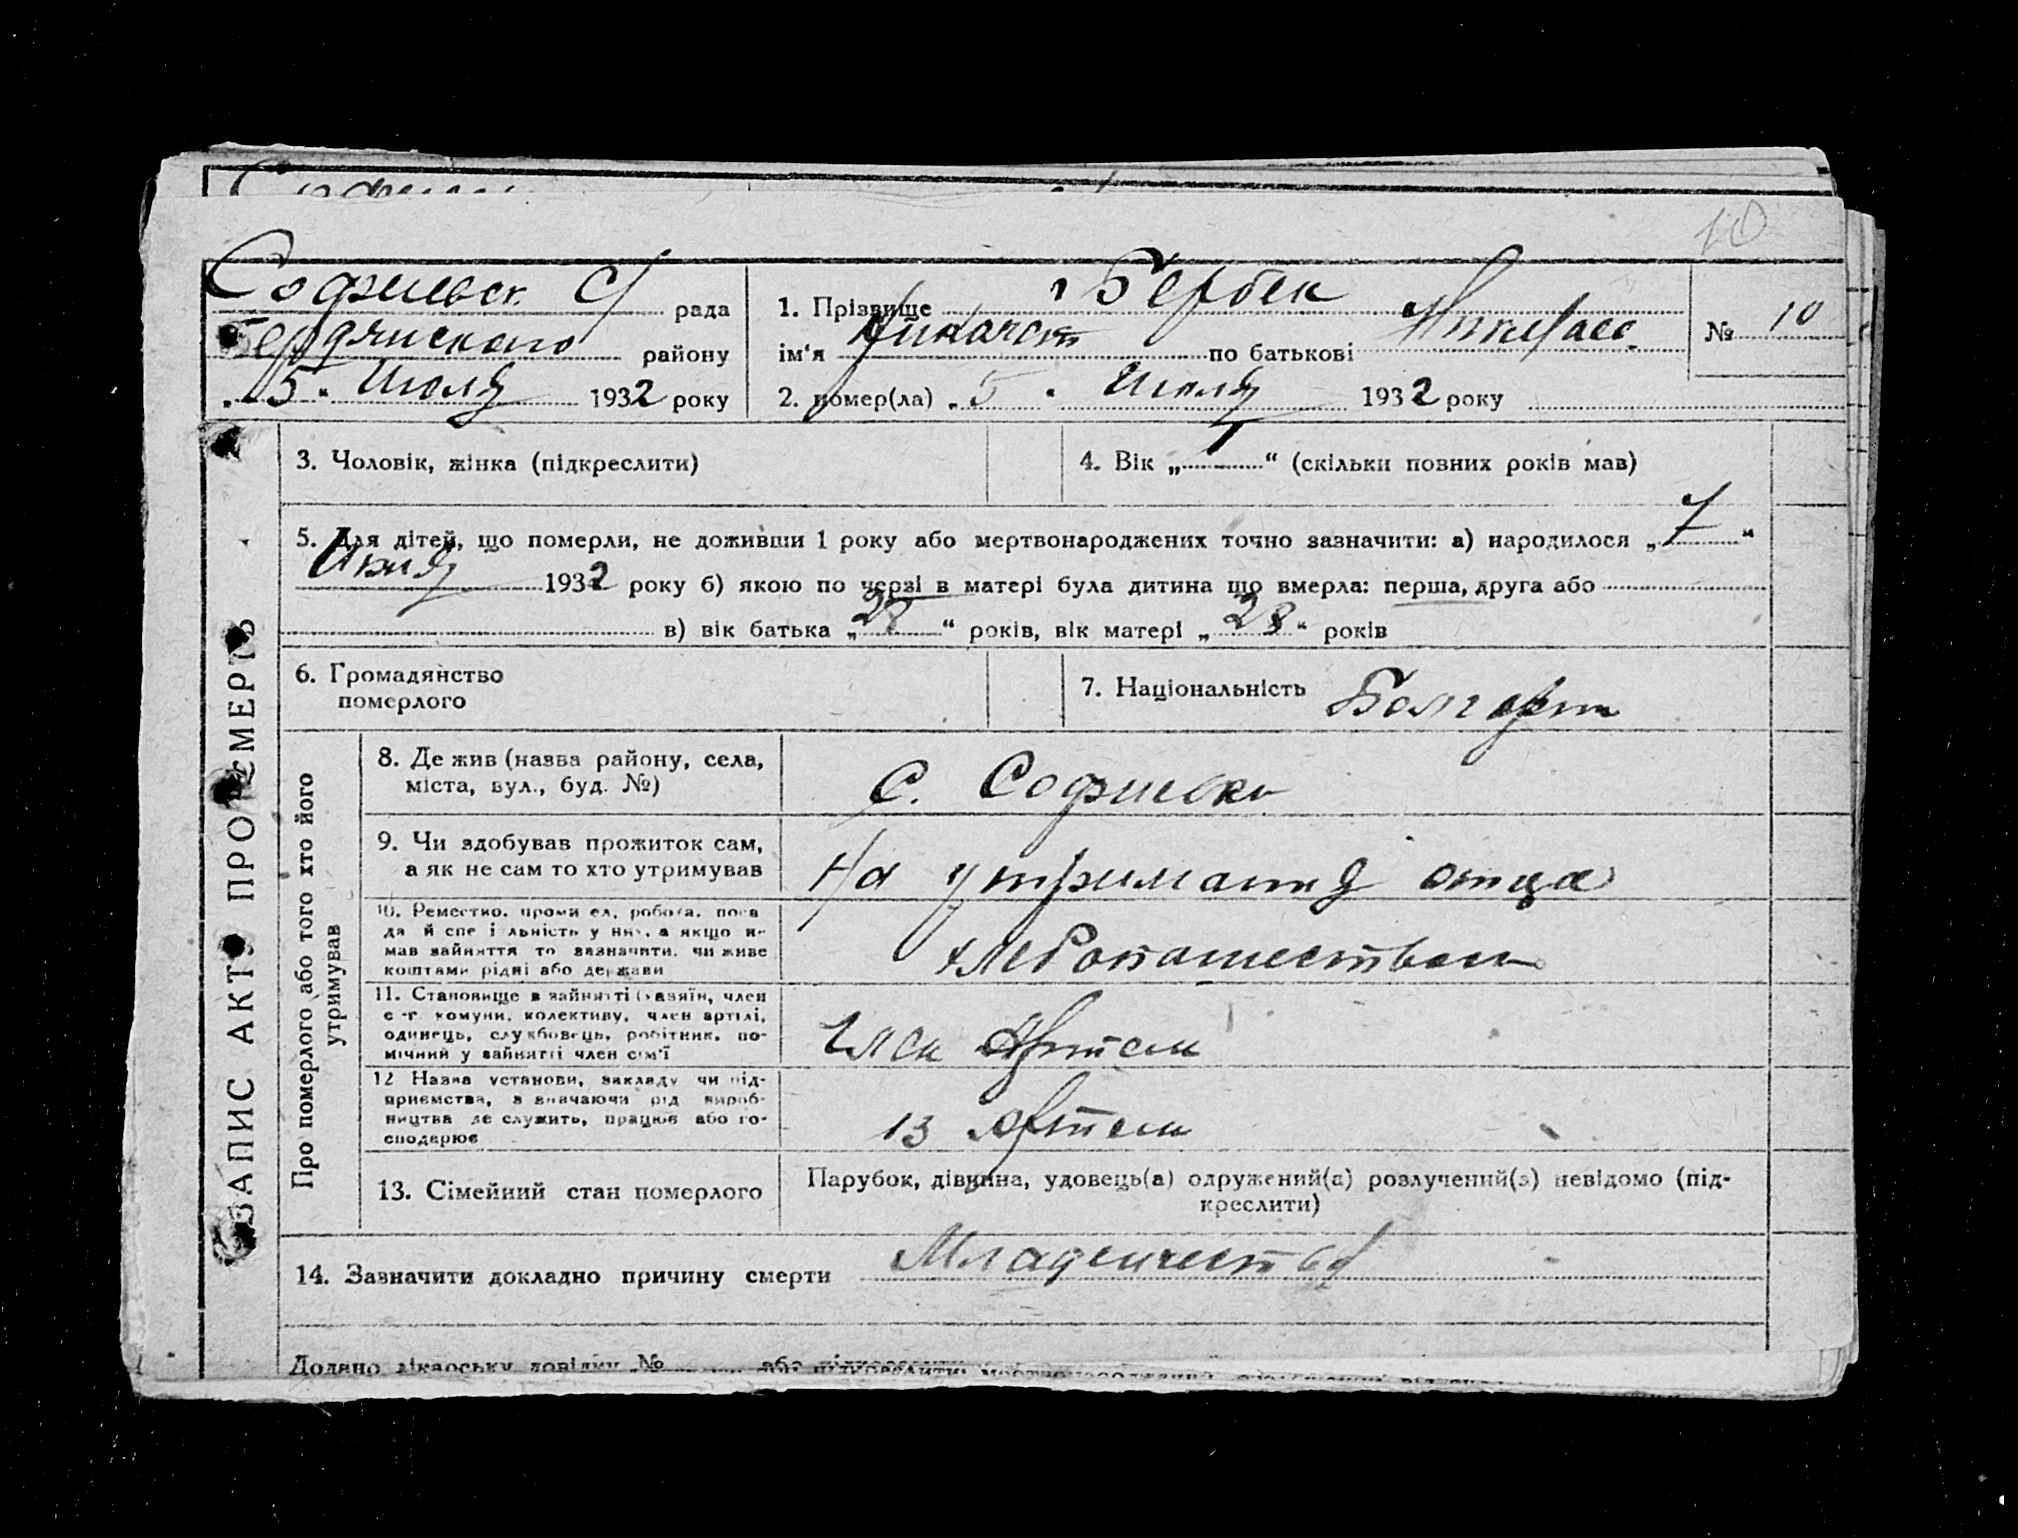 10
Софиевск. С/ рада
Бердянского району
„5“ Июля 1932 року
1. Прізвище Бербек
ім'я по батькові Николаев.
№ 10
2. помер(ла) „5“ Июля 1932 року
ЗАПИС АКТУ ПРО СМЕРТЬ
3. Чоловік, жінка (підкреслити)
4. Вік „ “ (скільки повних років мав)
5. Для дітей, що померли, не доживши 1 року або мертвонароджених точно зазначити: а) народилося „7“
1932 року б) якою по черзі в матері була дитина що вмерла: перша, друга або
в) вік батька „28“ років, вік матері „28“ років
6. Громадянство
померлого
7. Національність Болгарин
Про померлого або того хто його
утримував
8. Де жив (назва району, села,
міста, вул., буд. №)
С. Софиевка
9. Чи здобував прожиток сам,
а як не сам то хто утримував
На утримания отца
10. Ремество, промисел, робота, поса
да й спеціальність у них, а якщо н-
мав зайняття то зазначити, чи живе
коштами рідні або держави
хлебопашеством
11. Становище в зайнятті (хазяїн, член
с.-г. комуни, колективу, член артілі,
одинець, службовець, робітник, по-
мічний у зайнятті член сім'ї
Член Артели
12 Назва установи, закладу чи під-
приємства, зазначаючи рід вироб-
ництва де служить, працює або го-
сподарює
13 Артели
13. Сімейний стан померлого
Парубок, дівчина, удовець(а) одружений(а) розлучений(а) невідомо (під-
креслити)
14. Зазначити докладно причину смерти Младенчество
Додано лікарську довідку № або підкреслити: